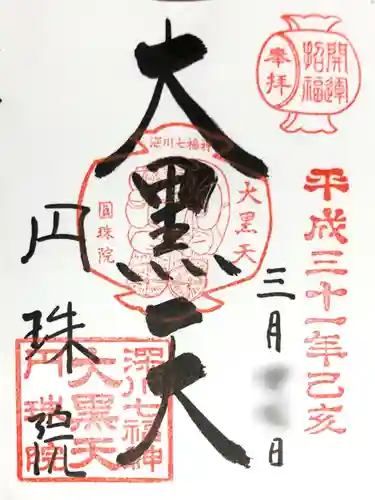 奉拝
開運
招福
平成三十一年己亥
三月
日
大黒天
深川七福神
大黒天
圓珠院
円珠院
深川七福神
大黒天
円珠院